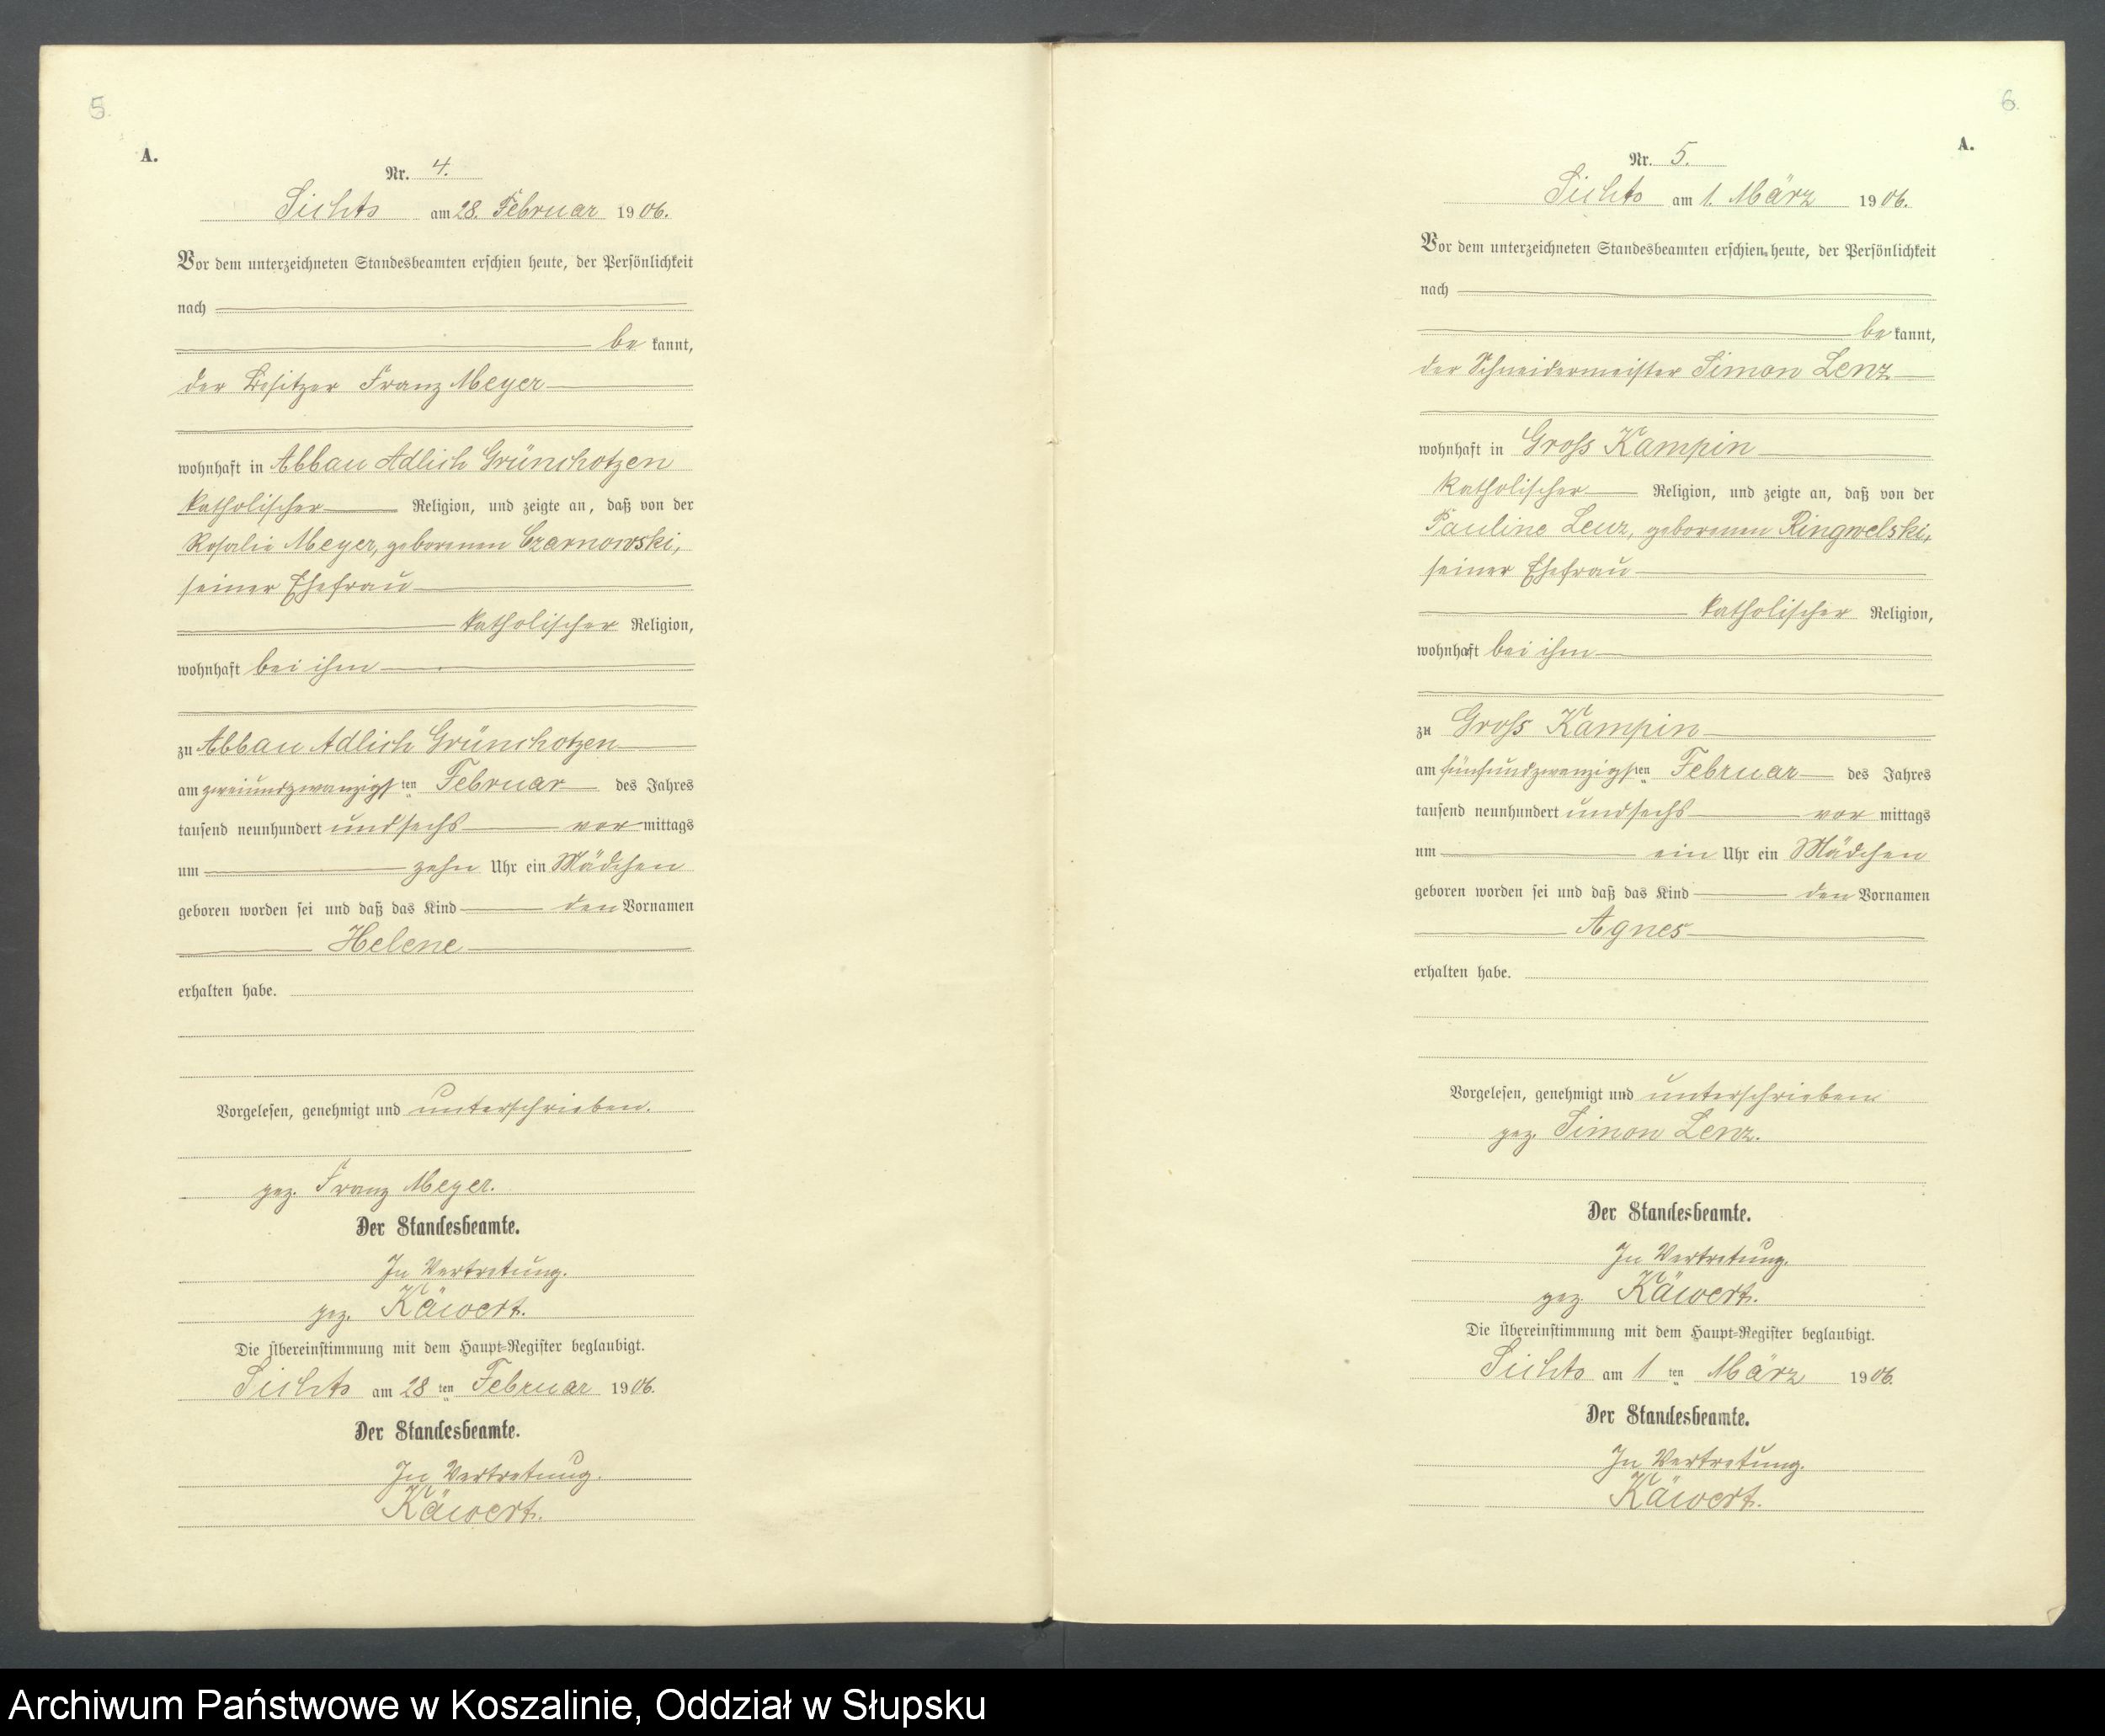 5.
A.
Nr. 4.
Sichts am 28. Februar 1906.
Vor dem unterzeichneten Standesbeamten erschien heute, der Persönlichkeit
nach
be kannt,
der Besitzer Franz Meyer
wohnhaft in Abbau Adlich Grünchotzen
katholischer Religion, und zeigte an, daß von der
Rosalie Meyer, geborenen Czarnowski,
seiner Ehefrau
katholischer Religion,
wohnhaft bei ihm
zu Abbau Adlich Grünchotzen
am zweiundzwanzigsten Februar des Jahres
tausend neunhundert undsechs vor mittags
um zehn Uhr ein Mädchen
geboren worden sei und daß das Kind den Vornamen
Helene
erhalten habe.
Vorgelesen, genehmigt und unterschrieben.
gez. Franz Meyer.
Der Standesbeamte.
In Vertretung.
gez. Käwert.
Die Übereinstimmung mit dem Haupt-Register beglaubigt.
Sichts am 28 ten Februar 1906.
Der Standesbeamte.
In Vertretung.
Käwert.
6.
A.
Nr. 5.
Sichts am 1. März 1906.
Vor dem unterzeichneten Standesbeamten erschien heute, der Persönlichkeit
nach
be kannt,
der Schneidermeister Simon Lenz
wohnhaft in Gross Kampin
katholischer Religion, und zeigte an, daß von der
Pauline Lenz, geborenen Ringwelski,
seiner Ehefrau
katholischer Religion,
wohnhaft bei ihm
zu Gross Kampin
am fünfundzwanzigsten Februar des Jahres
tausend neunhundert undsechs vor mittags
um ein Uhr ein Mädchen
geboren worden sei und daß das Kind den Vornamen
Agnes
erhalten habe.
Vorgelesen, genehmigt und unterschrieben
gez. Simon Lenz.
Der Standesbeamte.
In Vertretung.
gez. Käwert.
Die Übereinstimmung mit dem Haupt-Register beglaubigt.
Sichts am 1 ten März 1906.
Der Standesbeamte.
In Vertretung.
Käwert.
Archiwum Państwowe w Koszalinie, Oddział w Słupsku